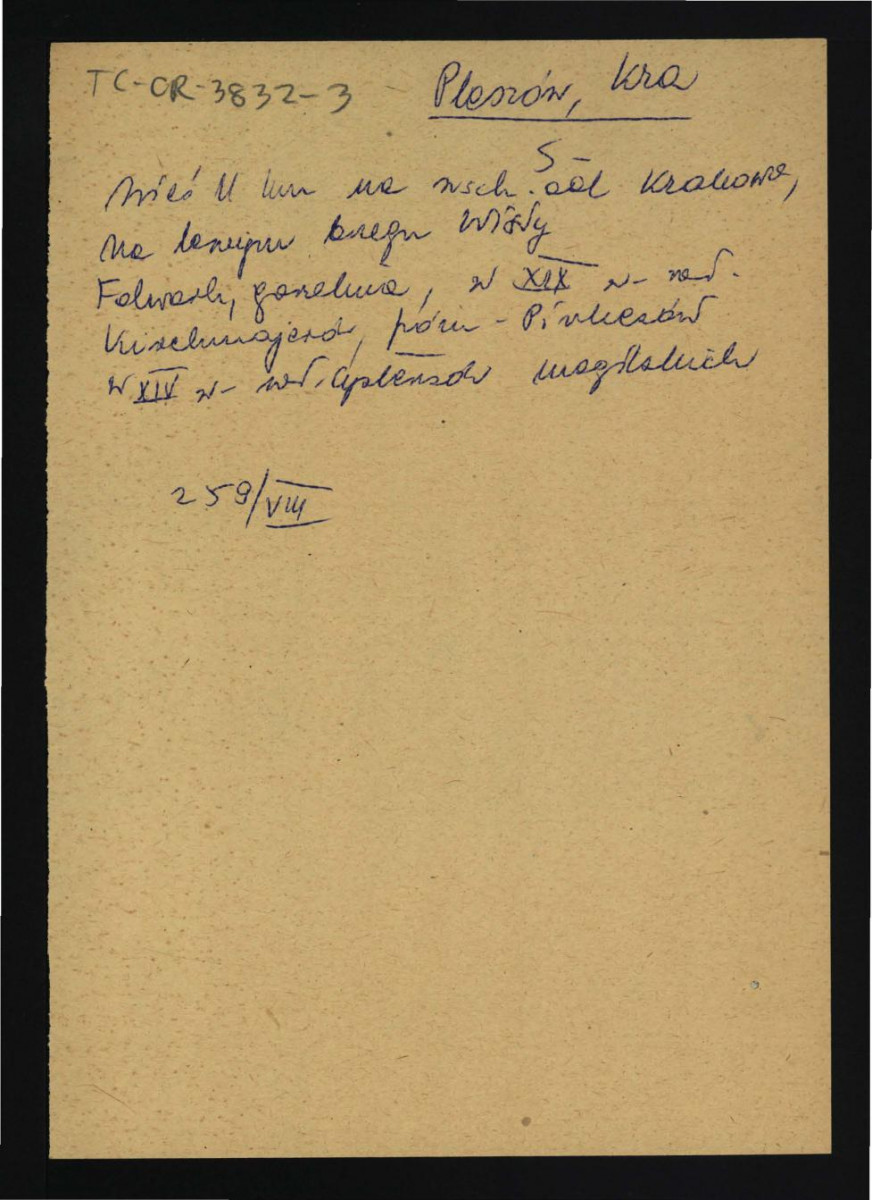 TC-OR-3832-3
Pleszów, Kra
S-
Wieś 11 km na wsch. od Krakowa,
na lewym brzegu Wisły
Folwark, gorzelnia, w XIX w- wł.
Kirchmajerów, późn-
w XIV w- wł. Cystersów mogilskich
259/VIII